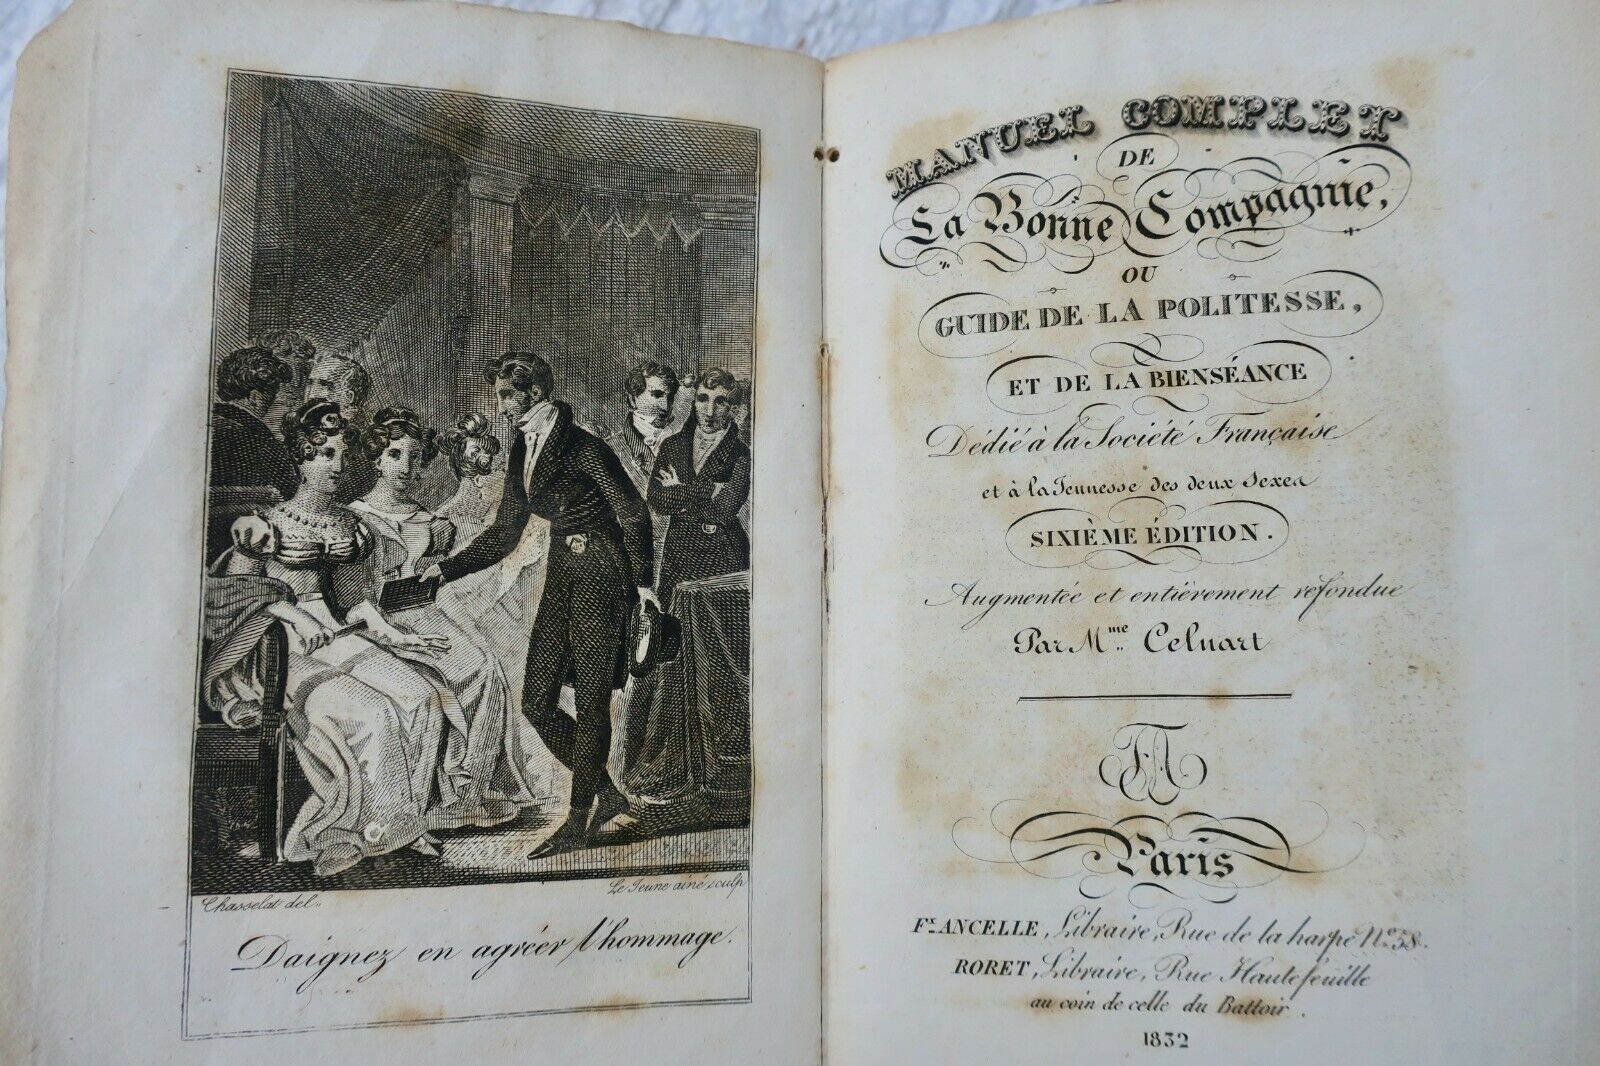 Chasselat del..
Le Jeune ainé sculp
Daignez en agréer l'hommage.
MANUEL COMPLET
DE
La Bonne Compagnie,
OU
GUIDE DE LA POLITESSE,
ET DE LA BIENSÉANCE
Dédié à la Société Française
et à la Jeunesse des deux Sexes
SIXIÈME ÉDITION.
Augmentée et entièrement refondue
Par Mme. Celnart
Paris
Fx. ANCELLE, Libraire, Rue de la harpe No. 58.
RORET, Libraire, Rue Hautefeuille
au coin de celle du Battoir.
1832